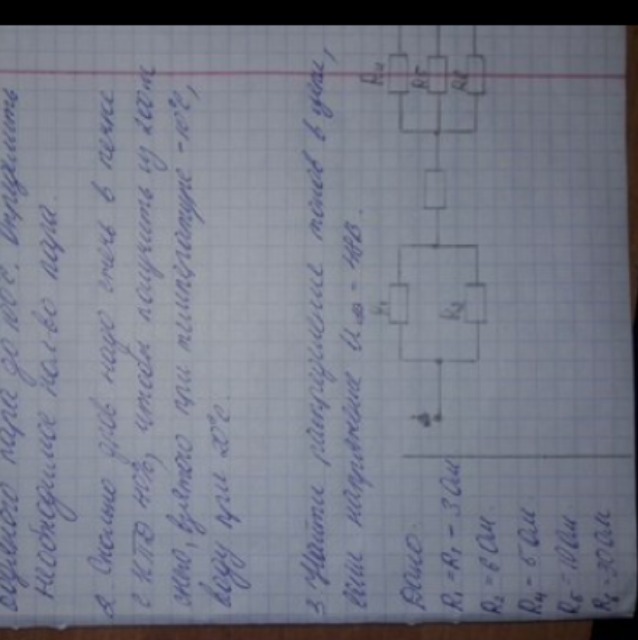 водяного пара до 100°С. Определить
необходимое кол-во пара.
2. Сколько дров надо сжечь в печке
с КПД 40%, чтобы получить из 200 кг
снега, взятого при температуре -10°С,
воду при 20°С.
3. Найти распределение токов в цепи,
если напряжение
Дано:
R₁ = R₃ - 3 Ом
R₂ = 6 Ом
R₄ = 5 Ом
R₅ = 10 Ом
R₆ = 30 Ом
R₁
R₂
R₄
R₅
R₆